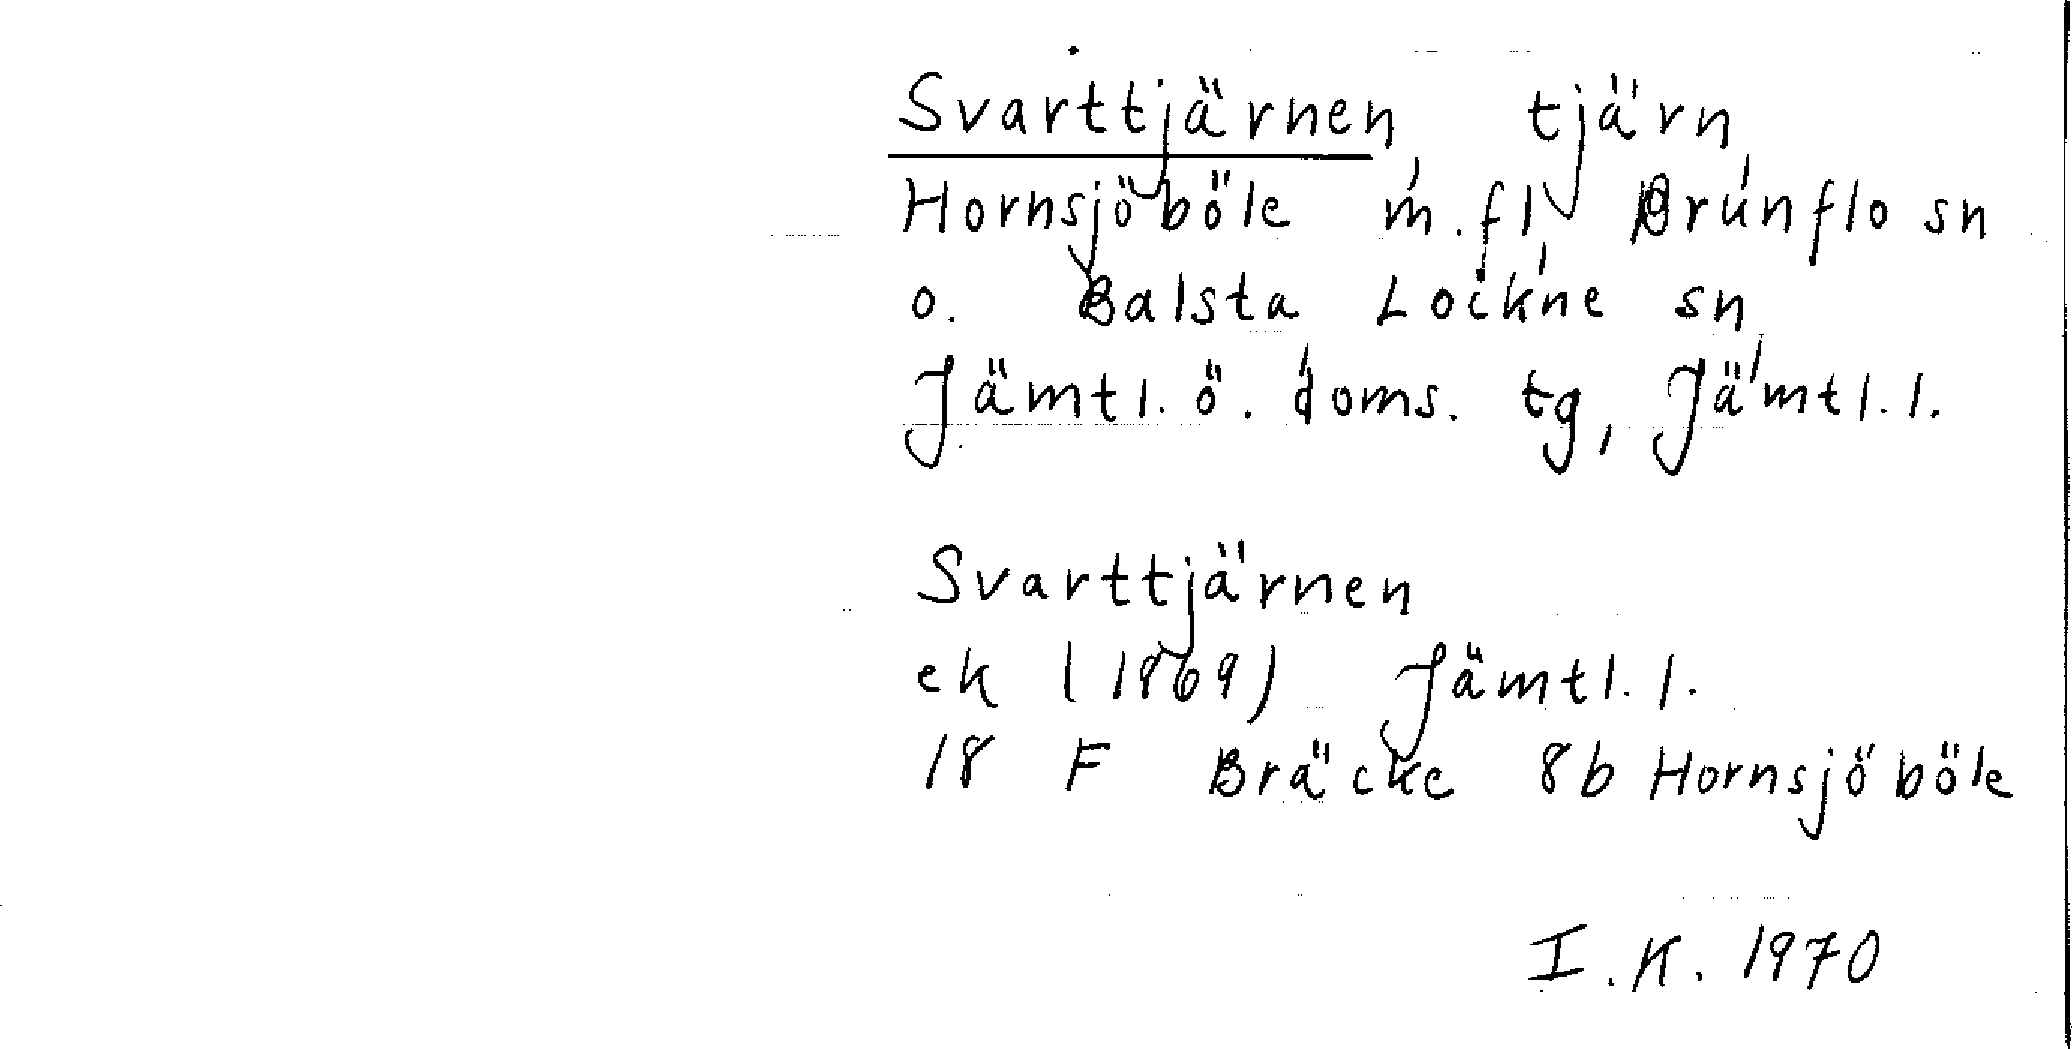 Svarttjärnen, tjärn,
Hornsjöböle m.fl, Brunflo sn
o. Balsta Lockne sn,
Jämtl. ö. doms. tg, Jämtl. l.
Svarttjärnen
ek (1969) Jämtl. l.
18 F Bräcke 8b Hornsjöböle
I.K. 1970